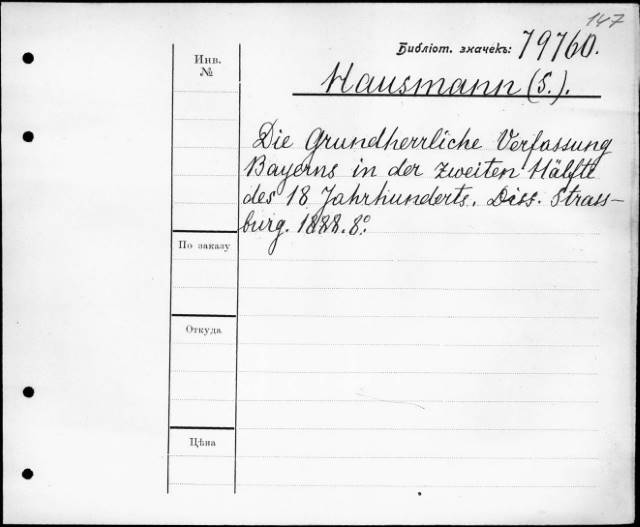 147
Библіот. значекъ: 79760.
Hausmann (S.).
Инв.
№
Die Grundherrliche Verfassung
Bayerns in der zweiten Hälfte
des 18 Jahrhunderts. Diss. Strass-
burg. 1888. 8º.
По заказу
Откуда
Цѣна